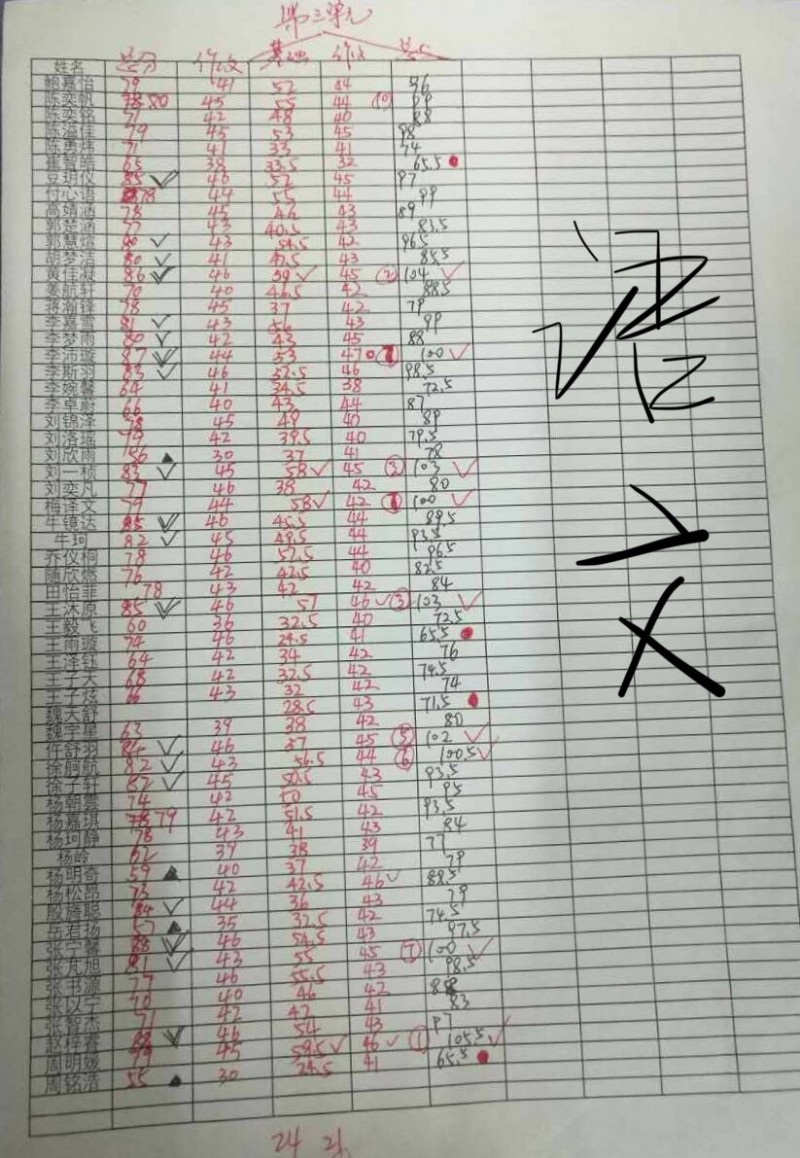 第三单元
姓名 总分 作文 基础 作文 总分
鲍嘉怡 79 41 52 44 96
陈奕帆 78 80 45 55 44 ⑩ 99
陈奕铭 71 42 48 40 88
陈溢佳 79 45 53 45 98
陈勇炜 71 41 33 41 74
崔智皓 65 38 33.5 32 65.5
豆玥仪 85 46 52 45 97
付心语 78 44 55 44 99
高靖涵 78 45 46 43 89
郭楚涵 77 43 40.5 43 83.5
郭慧煊 80 43 54.5 42 96.5
胡梦洁 80 41 42.5 43 85.5
黄佳凝 86 46 59 45 ② 104
姜航轩 70 40 46.5 42 88.5
蒋瀚锋 78 45 37 42 79
李嘉雪 81 43 56 43 99
李梦雨 80 42 43 45 88
李沛璇 87 44 53 47 ⑦ 100
李斯羽 83 46 52.5 46 98.5
李婉馨 64 41 34.5 38 72.5
李卓蔚 66 40 43 44 87
刘锦泽 78 45 49 40 89
刘洛瑶 79 42 39.5 40 79.5
刘欣雨 56 30 37 41 78
刘一桢 83 45 58 45 ③ 103
刘奕凡 77 46 38 42 80
梅泽文 79 44 58 42 100
牛镜达 85 46 45.5 44 89.5
牛珂 82 45 49.5 44 93.5
乔仪桐 78 46 52.5 44 96.5
随欣燃 76 42 42.5 40 82.5
田怡菲 78 43 42 42 84
王沐原 85 46 57 46 ③ 103
王毅飞 60 36 32.5 40 72.5
王雨璇 74 46 24.5 41 65.5
王泽钰 64 42 34 42 76
王子天 68 42 32.5 42 74.5
王子炫 66 43 32 42 74
魏天舒 28.5 43 71.5
魏宇星 63 39 38 42 80
仵舒羽 84 46 57 45 ⑤ 102
徐舸航 82 43 56.5 44 ⑥ 100.5
徐子轩 82 45 50.5 43 93.5
杨朝霎 74 42 50 45 95
杨嘉琪 78 79 42 51.5 42 93.5
杨珂静 78 43 41 43 84
杨岭 62 39 38 39 77
杨明奇 59 40 37 42 79
杨松昂 73 42 42.5 46 88.5
殷旌聪 84 44 36 43 79
岳君扬 57 35 32.5 42 74.5
张宁馨 88 46 54.5 43 97.5
张凡旭 81 43 55 45 ⑦ 100
张书源 77 46 55.5 43 98.5
张以宁 70 40 46 42 88
张智杰 71 42 42 41 83
赵梓睿 88 46 54 43 97
周明媛 79 45 59.5 46 ① 105.5
周铭浩 55 30 24.5 41 65.5
24 21
语文